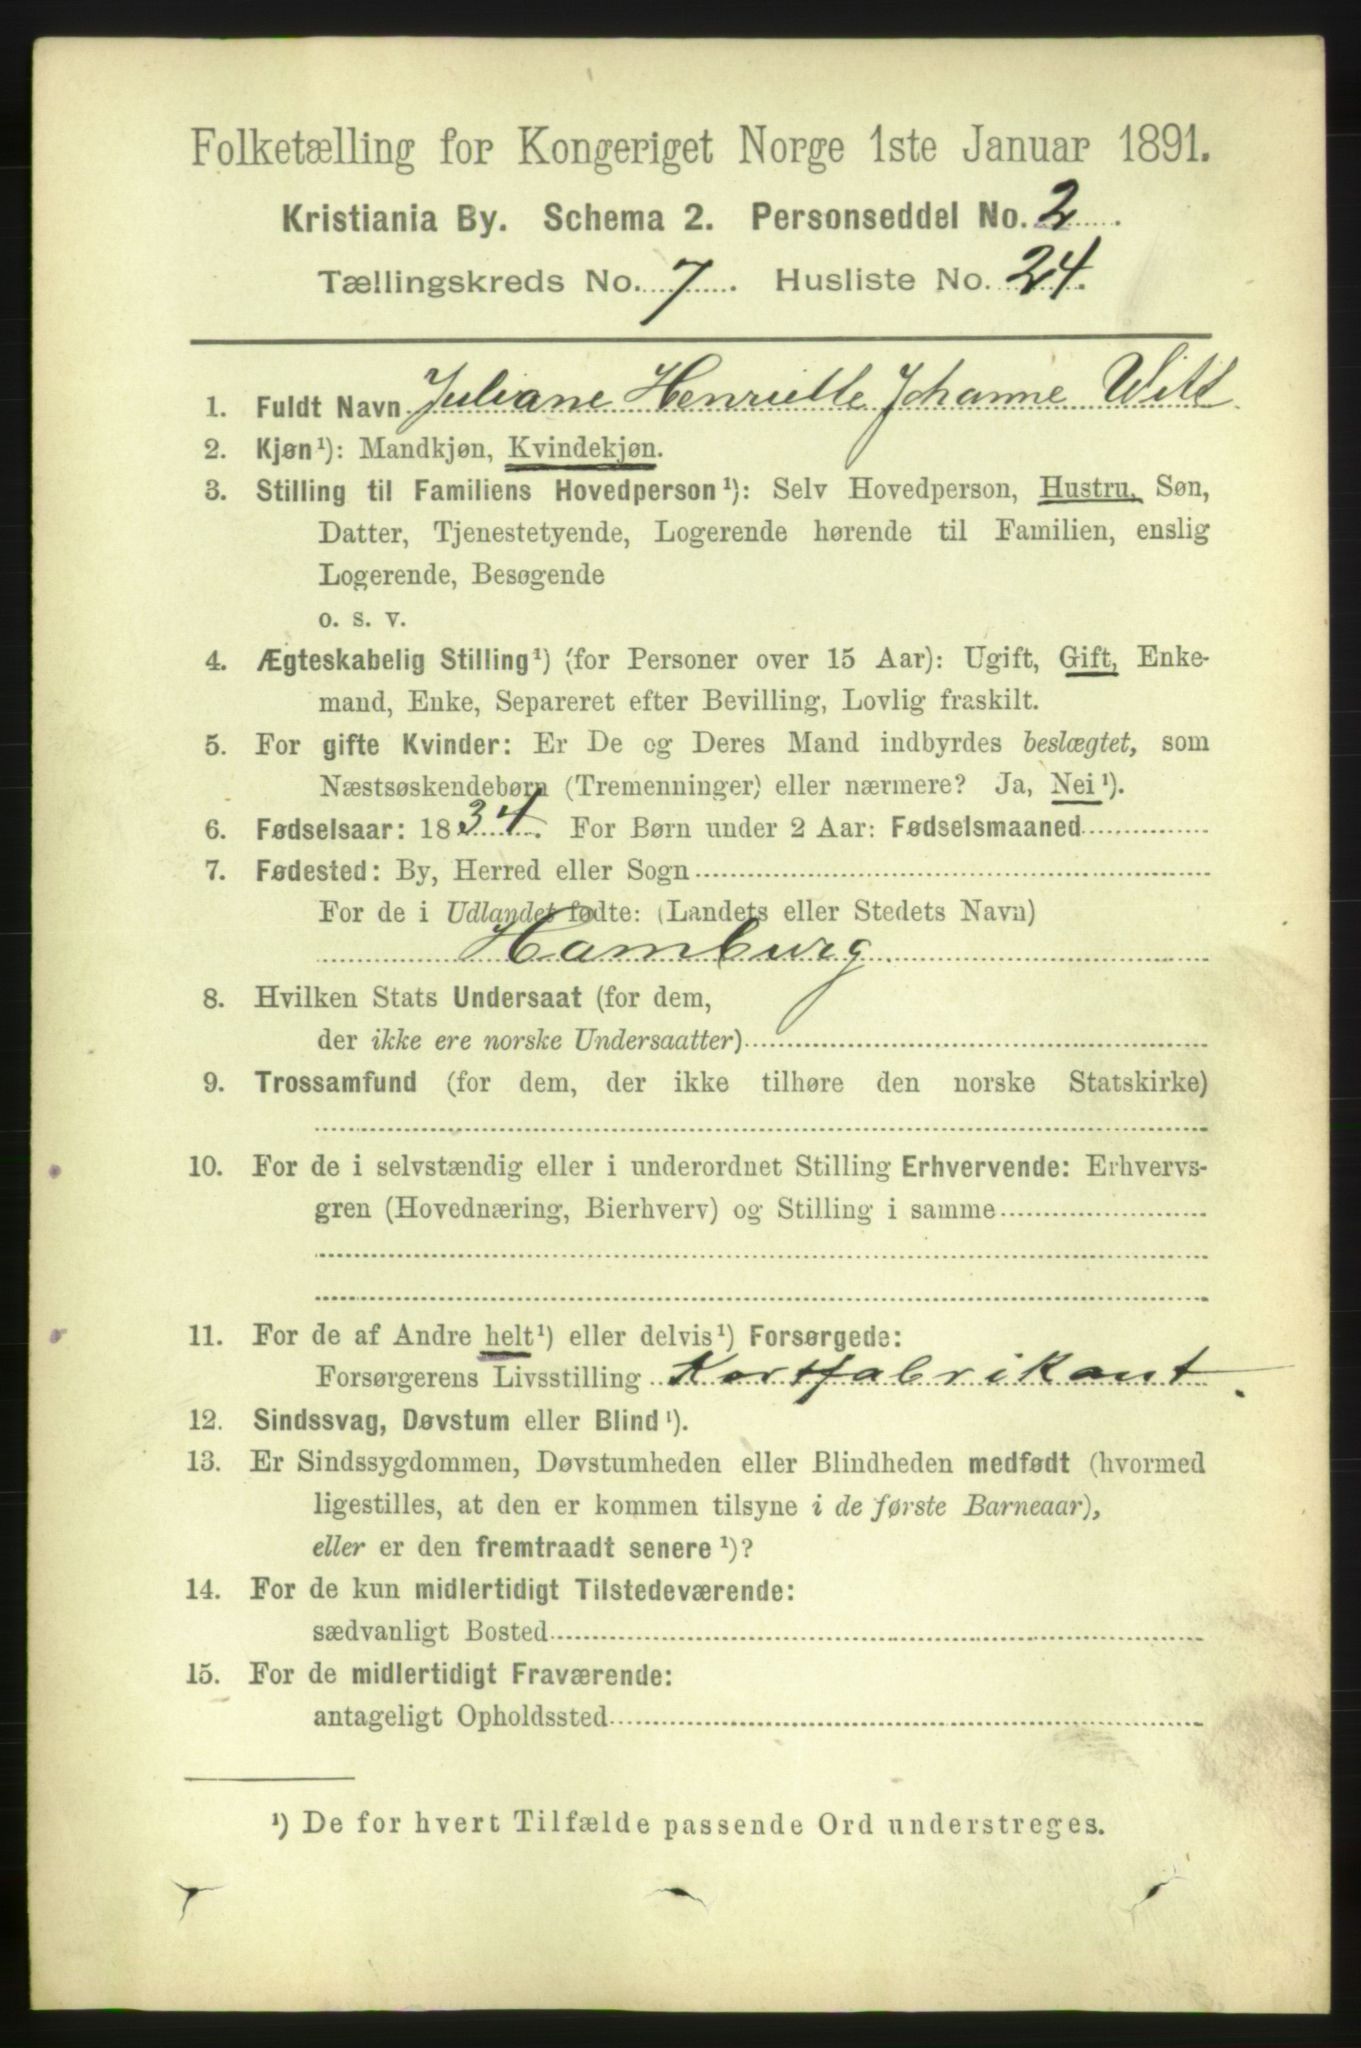 Folketælling for Kongeriget Norge 1ste Januar 1891.
Kristiania By. Schema 2. Personseddel No. 2
Tællingskreds No. 7. Husliste No. 24.
1. Fuldt Navn Juliane Henriette Johanne Witt
2. Kjøn¹): Mandkjøn, Kvindekjøn.
3. Stilling til Familiens Hovedperson¹): Selv Hovedperson, Hustru, Søn,
Datter, Tjenestetyende, Logerende hørende til Familien, enslig
Logerende, Besøgende
o. s. v.
4. Ægteskabelig Stilling¹) (for Personer over 15 Aar): Ugift, Gift, Enke-
mand, Enke, Separeret efter Bevilling, Lovlig fraskilt.
5. For gifte Kvinder: Er De og Deres Mand indbyrdes beslægtet, som
Næstsøskendebørn (Tremenninger) eller nærmere? Ja, Nei¹).
6. Fødselsaar: 1834. For Børn under 2 Aar: Fødselsmaaned
7. Fødested: By, Herred eller Sogn
For de i Udlandet fødte: (Landets eller Stedets Navn)
Hamburg
8. Hvilken Stats Undersaat (for dem,
der ikke ere norske Undersaatter)
9. Trossamfund (for dem, der ikke tilhøre den norske Statskirke)
10. For de i selvstændig eller i underordnet Stilling Erhvervende: Erhvervs-
gren (Hovednæring, Bierhverv) og Stilling i samme
11. For de af Andre helt¹) eller delvis¹) Forsørgede:
Forsørgerens Livsstilling Kortfabrikant.
12. Sindssvag, Døvstum eller Blind¹).
13. Er Sindssygdommen, Døvstumheden eller Blindheden medfødt (hvormed
ligestilles, at den er kommen tilsyne i de første Barneaar),
eller er den fremtraadt senere¹)?
14. For de kun midlertidigt Tilstedeværende:
sædvanligt Bosted
15. For de midlertidigt Fraværende:
antageligt Opholdssted
¹) De for hvert Tilfælde passende Ord understreges.